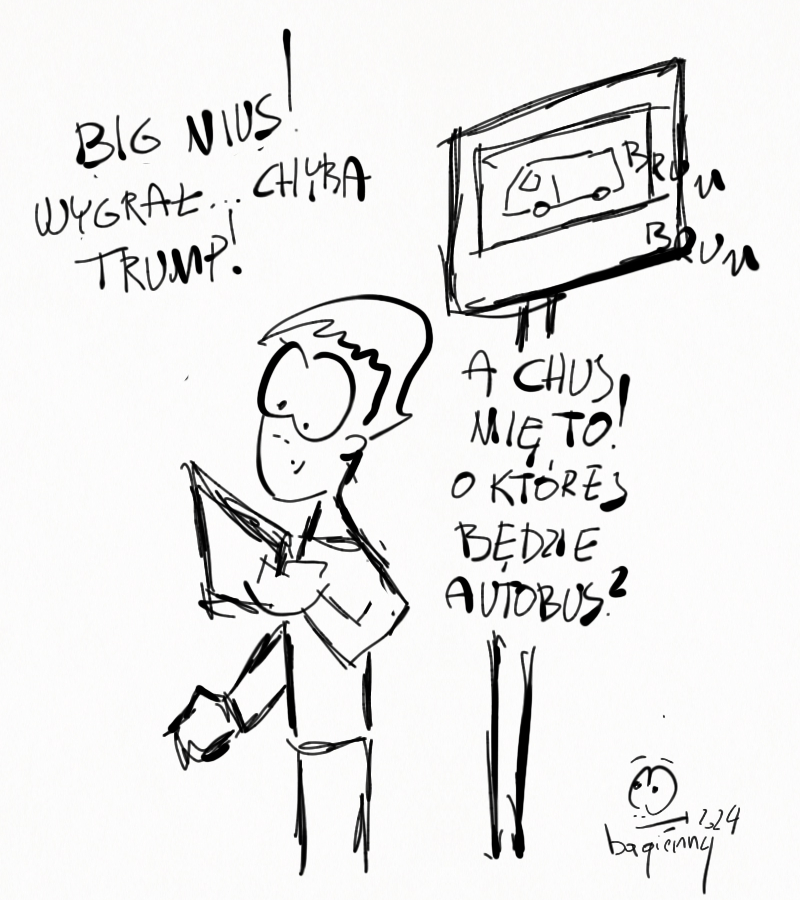 BIG NIUS!
WYGRAŁ... CHYBA
TRUMP!
BRUM
BRUM
A CHUS
MIĘ TO!
O KTÓREJ
BĘDZIE
AUTOBUS?
bagienny